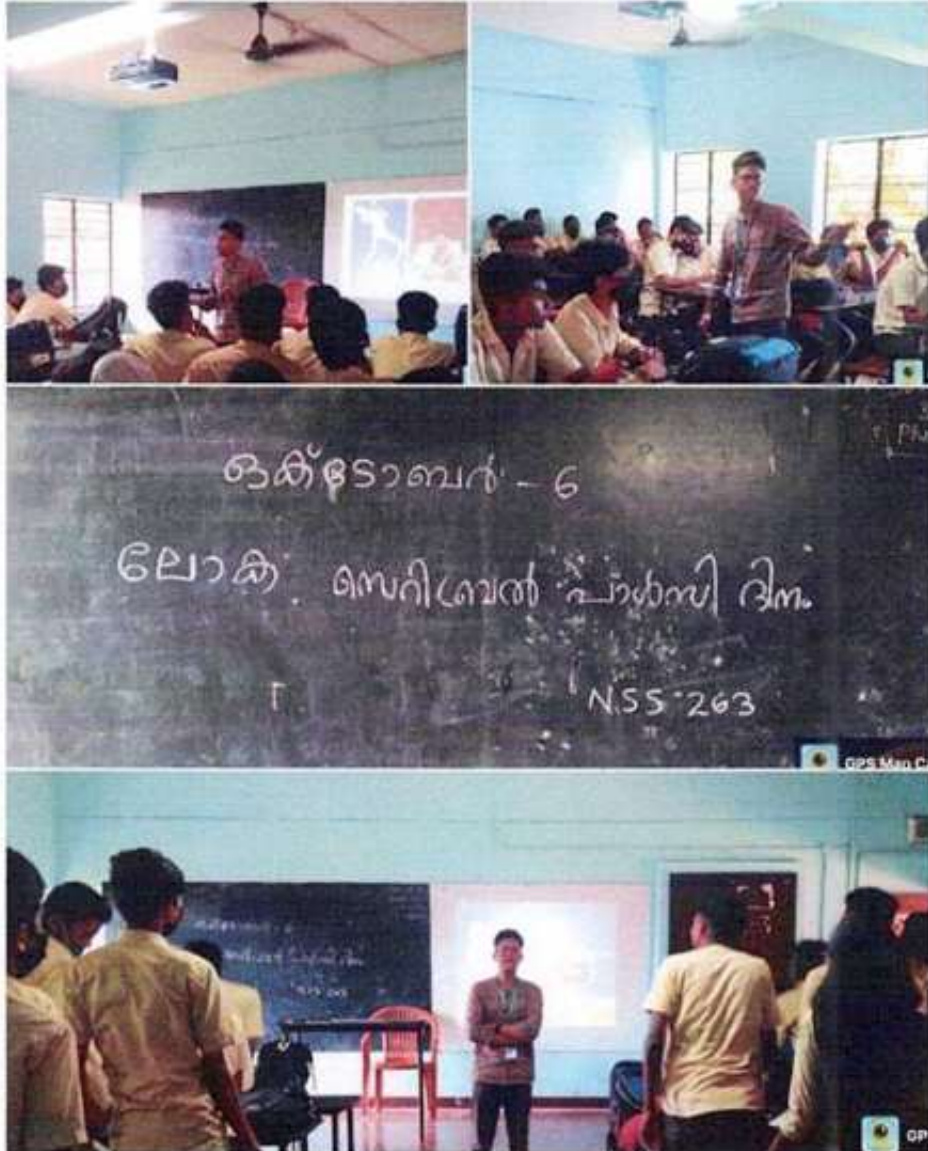 ഒക്ടോബർ - 6
ലോക സെറിബ്രൽ പാൾസി ദിനം
N.SS 263
GPS Map Ca
GP